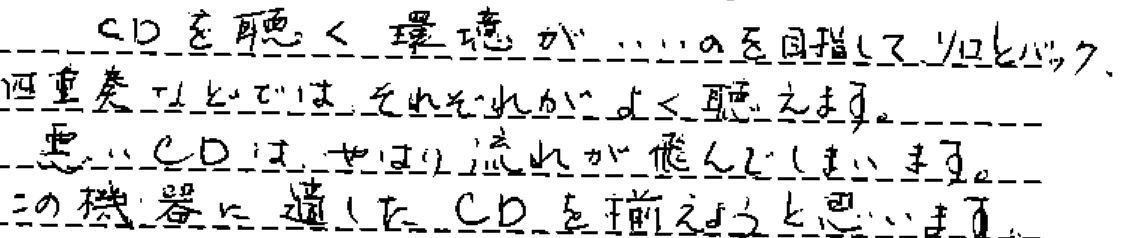 CDを聴く環境が‥‥のを目指してソロとバック、
四重奏などでは、それぞれがよく聴えます。
悪いCDは、やはり流れが飛んでしまいます。
この機器に適したCDを揃えようと思います。